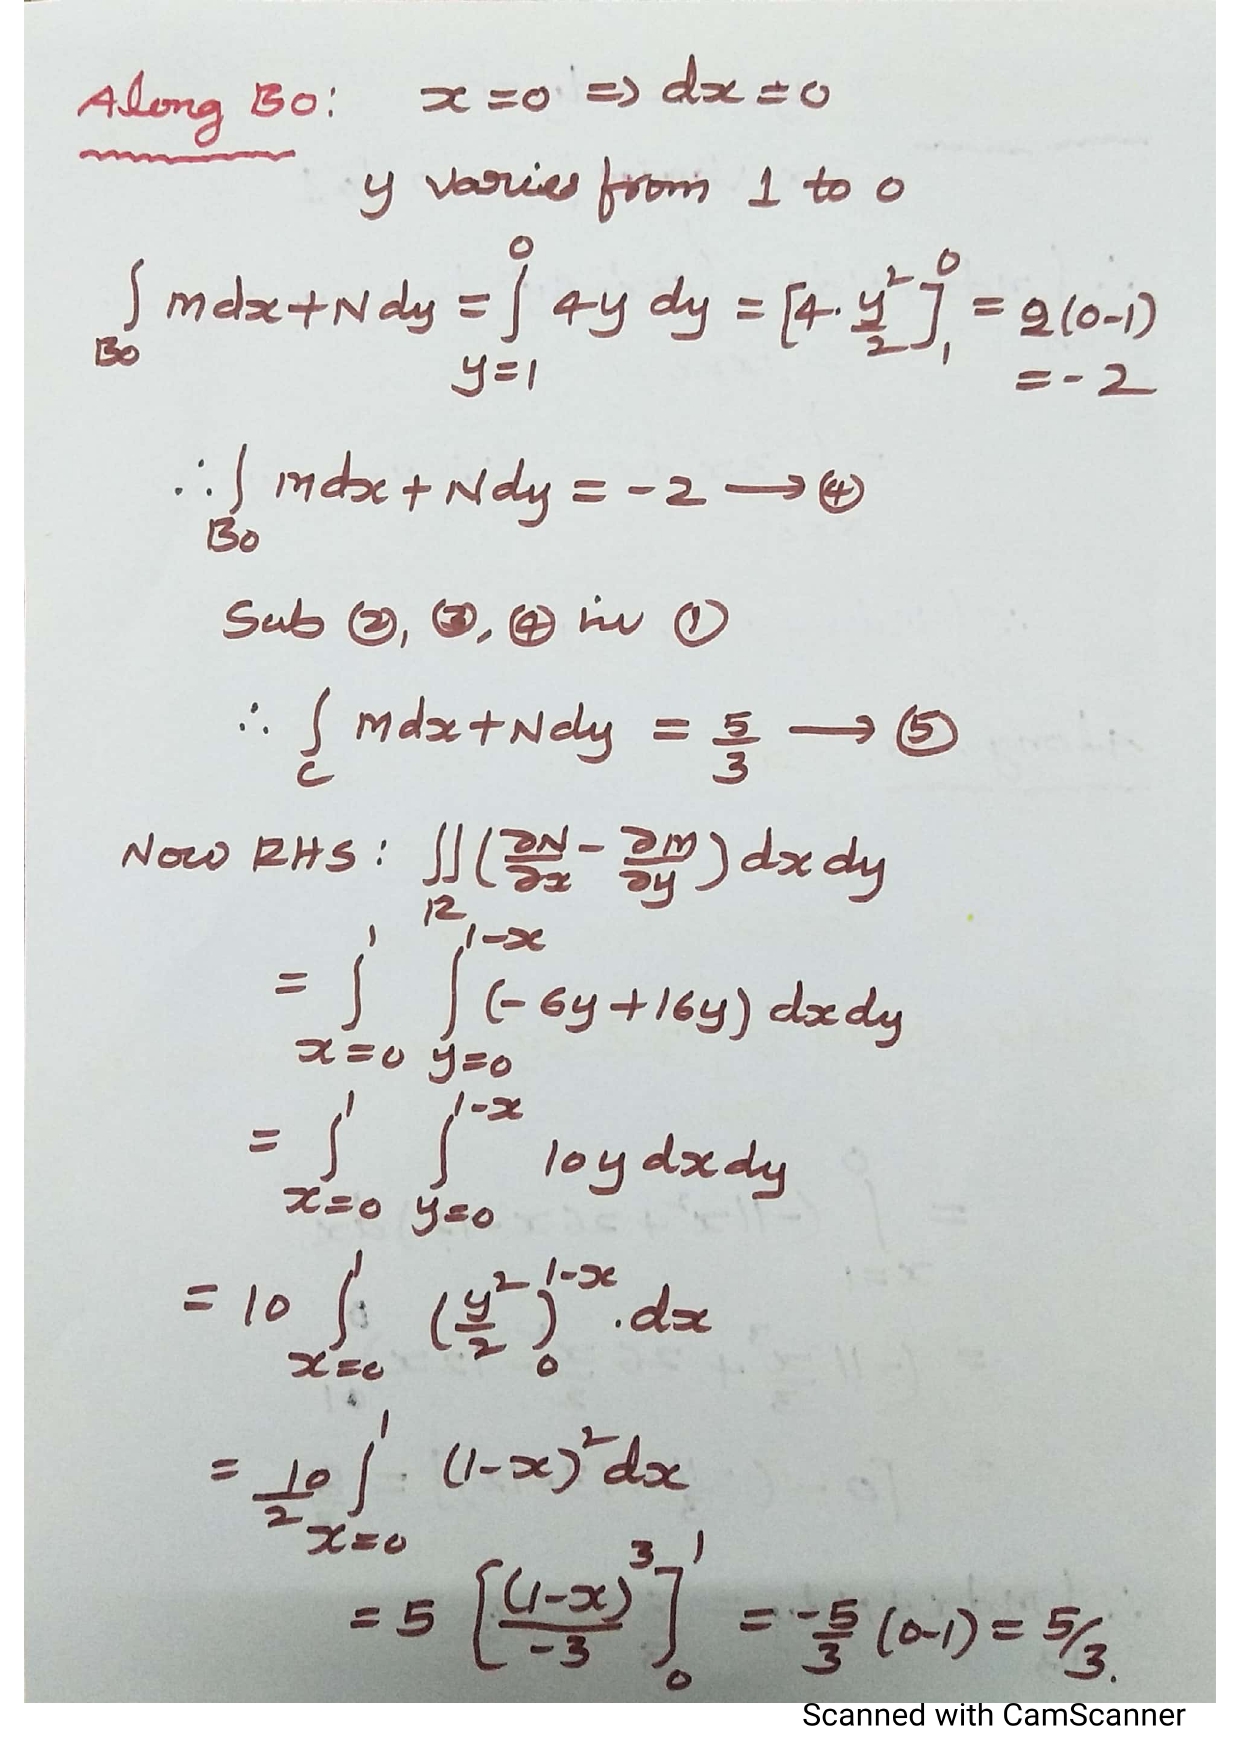 Along BO: x=0 => dx=0
y varies from 1 to 0
∫_{BO} Mdx+Ndy = ∫_{y=1}^{0} 4y dy = [4·y²/2]_1^0 = 2(0-1)
= -2
∴ ∫_{BO} Mdx+Ndy = -2 → ④
Sub ②, ③, ④ in ①
∴ ∫_C Mdx+Ndy = 5/3 → ⑤
Now RHS: ∬_R (∂N/∂x - ∂M/∂y) dx dy
= ∫_{x=0}^{1} ∫_{y=0}^{1-x} (-6y+16y) dx dy
= ∫_{x=0}^{1} ∫_{y=0}^{1-x} 10y dx dy
= 10 ∫_{x=0}^{1} (y²/2)_0^{1-x} .dx
= 10/2 ∫_{x=0}^{1} (1-x)² dx
= 5 [(1-x)³/-3]_0^1 = -5/3 (0-1) = 5/3.
Scanned with CamScanner